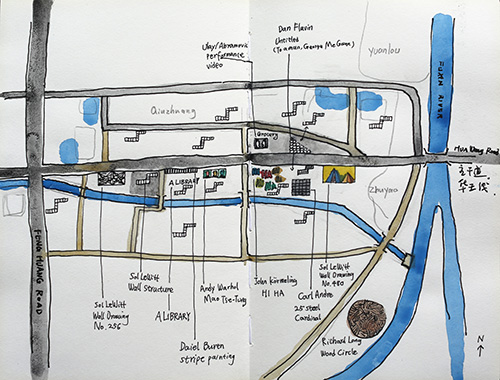 Ulay/Abramovic
performance
video
Dan Flavin
Untitled
(To a man, George McGovern)
Yuanlou
FUXN RIVER
Qiuzhuang
Grocery
Hua Wang Road
玄子道
华王伐
A LIBRARY
Zhuyma
FENG HUANG ROAD
Sol LeWitt
Wall Drawing
No. 256
Sol LeWitt
Wall Structure
A LIBRARY
Daiel Buren
stripe painting
Andy Warhol
Mao Tse-Tung
John Körmeling
HI HA
Carl Andre
25 Steel
Cardinal
Sol LeWitt
Wall Drawing
No. 480
Richard Long
Wood Circle
N